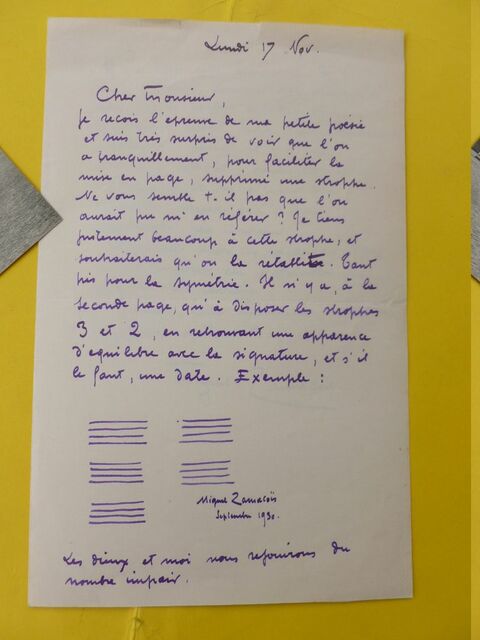 Lundi 17 Nov.
Cher Monsieur,
je reçois l'épreuve de ma petite poésie
et suis très surpris de voir que l'on
a tranquillement, pour faciliter la
mise en page, supprimé une strophe.
Ne vous semble t-il pas que l'on
aurait pu m'en référer? Je tiens
justement beaucoup à cette strophe, et
souhaiterais qu'on la rétablîte. Tant
pis pour la symétrie. Il n'y a, à la
seconde page, qu'à disposer les strophes
3 et 2, en retrouvant une apparence
d'équilibre avec la signature, et s'il
le faut, une date. Exemple :
Miguel Zamacoïs
Septembre 1930.
Les dieux et moi nous rejouirons du
nombre impair.